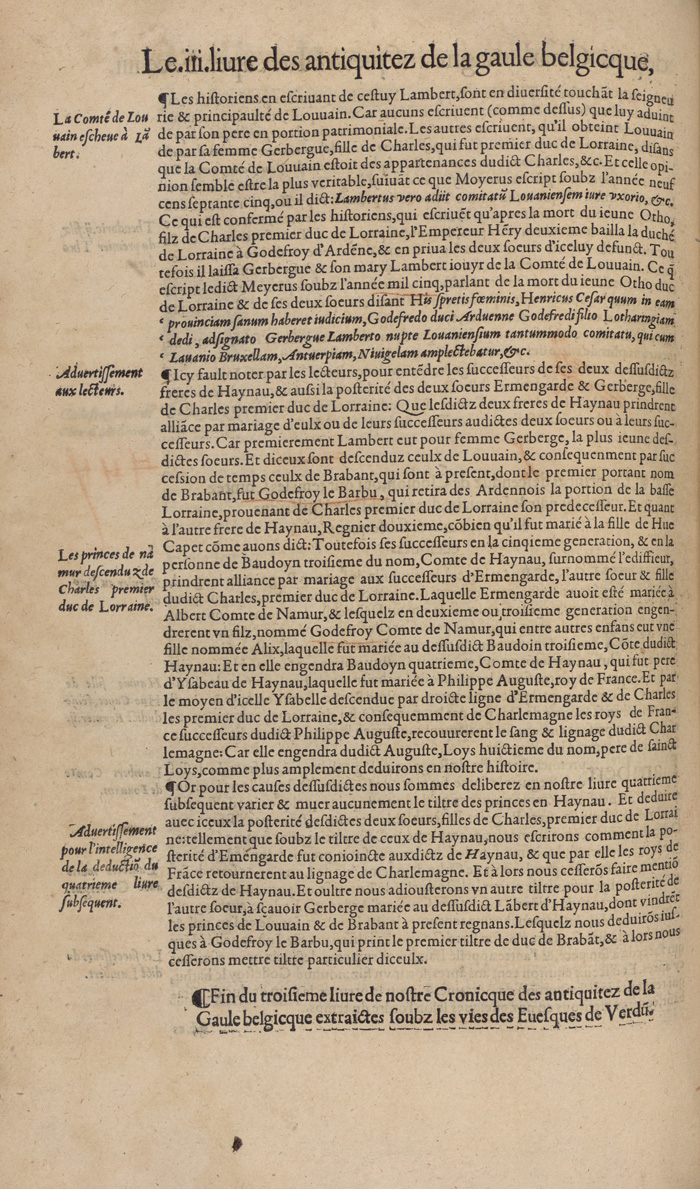 Le.iii.liure des antiquitez de la gaule belgicque,
¶Les historiens en escriuant de cestuy Lambert,sont en diuersité touchãt la seigneu
rie & principaulté de Louuain. Car aucuns escriuent (comme dessus) que luy aduint
de par son pere en portion patrimoniale. Les autres escriuent, qu'il obteint Louuain
de par sa femme Gerbergue,fille de Charles,qui fut premier duc de Lorraine, disans
que la Comté de Louuain estoit des appartenances dudict Charles,&c. Et celle opi-
nion semble estre la plus veritable,suiuãt ce que Moyerus escript soubz l'année neuf
cens septante cinq,ou il dict:Lambertus vero adiit comitatũ Louaniensem iure vxorio, &c.
Ce qui est confermé par les historiens,qui escriuẽt qu'apres la mort du ieune Otho,
filz de Charles premier duc de Lorraine,l'Empereur Hẽry deuxieme bailla la duché
de Lorraine à Godefroy d'Ardẽne,& en priua les deux soeurs d'iceluy defunct. Tou
tefois il laissa Gerbergue & son mary Lambert iouyr de la Comté de Louuain. Ce q̃
escript ledict Meyerus soubz l'année mil cinq,parlant de la mort du ieune Otho duc
de Lorraine & de ses deux soeurs disant His spretis fœminis, Henricus Cesar quum in eam
‹ prouinciam sanum haberet iudicium, Godefredo duci Arduenne Godefredi filio Lotharingiam
‹ dedi, adsignato Gerbergue Lamberto nupte Louaniensium tantummodo comitatu, qui cum
‹ Lauanio Bruxellam, Antuerpiam, Niuigelam amplectebatur, &c.
¶Icy fault noter par les lecteurs,pour entẽdre les successeurs de ses deux dessusdictz
freres de Haynau,& aussi la posterité des deux soeurs Ermengarde & Gerberge,fille
de Charles premier duc de Lorraine: Que lesdictz deux freres de Haynau prindrent
alliãce par mariage d'eulx ou de leurs successeurs audictes deux soeurs ou à leurs suc-
cesseurs. Car premierement Lambert eut pour femme Gerberge, la plus ieune des-
dictes soeurs. Et diceux sont descenduz ceulx de Louuain,& consequenment par suc
cession de temps ceulx de Brabant,qui sont à presẽt,dont le premier portant nom
de Brabant,fut Godefroy le Barbu, qui retira des Ardennois la portion de la basse
Lorraine,prouenant de Charles premier duc de Lorraine son predecesseur. Et quant
à l'autre frere de Haynau, Regnier douxieme, cõbien qu'il fut marié à la fille de Hue
Capet cõme auons dict: Toutefois ses successeurs en la cinqieme generation, & en la
personne de Baudoyn troisieme du nom, Comte de Haynau, surnommé l'edifieur,
prindrent alliance par mariage aux successeurs d'Ermengarde, l'autre soeur & fille
dudict Charles,premier duc de Lorraine. Laquelle Ermengarde auoit esté mariée à
Albert Comte de Namur,& lesquelz en deuxieme ou troisieme generation engen-
drerent vn filz,nommé Godefroy Comte de Namur,qui entre autres enfans eut vne
fille nommée Alix,laquelle fut mariée au dessusdict Baudoin troisieme, Cõte dudict
Haynau: Et en elle engendra Baudoyn quatrieme, Comte de Haynau, qui fut pere
d'Ysabeau de Haynau,laquelle fut mariée à Philippe Auguste,roy de France. Et par
le moyen d'icelle Ysabelle descendue par droicte ligne d'Ermengarde & de Charles
les premier duc de Lorraine,& consequemment de Charlemagne les roys de Fran-
ce successeurs dudict Philippe Auguste,recouurerent le sang & lignage dudict Char
lemagne: Car elle engendra dudict Auguste, Loys huictieme du nom,pere de sainct
Loys,comme plus amplement deduirons en nostre histoire.
¶Or pour les causes dessusdictes nous sommes deliberez en nostre liure quatrieme
subsequent varier & muer aucunement le tiltre des princes en Haynau. Et deduire
auec iceux la posterité desdictes deux soeurs,filles de Charles,premier duc de Lorrai
ne:tellement que soubz le tiltre de ceux de Haynau,nous escrirons comment la po-
sterité d'Emẽngarde fut conioincte auxdictz de Haynau, & que par elle les roys de
Frãce retournerent au lignage de Charlemagne. Et à lors nous cesserõs faire mentiõ
desdictz de Haynau. Et oultre nous adiousterons vn autre tiltre pour la posterité de
l'autre soeur,à sçauoir Gerberge mariée au dessusdict Lãbert d'Haynau,dont vindrẽt
les princes de Louuain & de Brabant à present regnans. Lesquelz nous deduirõs ius-
ques à Godefroy le Barbu,qui print le premier tiltre de duc de Brabãt,& à lors nous
cesserons mettre tiltre particulier diceulx.
¶Fin du troisieme liure de nostre Cronicque des antiquitez de la
Gaule belgicque extraictes soubz les vies des Euesques de Verdũ.
La Comté de Lou
uain escheue à Lã
bert.
Aduertissement
aux lecteurs.
Les princes de na
mur descenduz de
Charles premier
duc de Lorraine.
Aduertissement
pour l'intelligence
de la deductiõ du
quatrieme liure
subsequent.